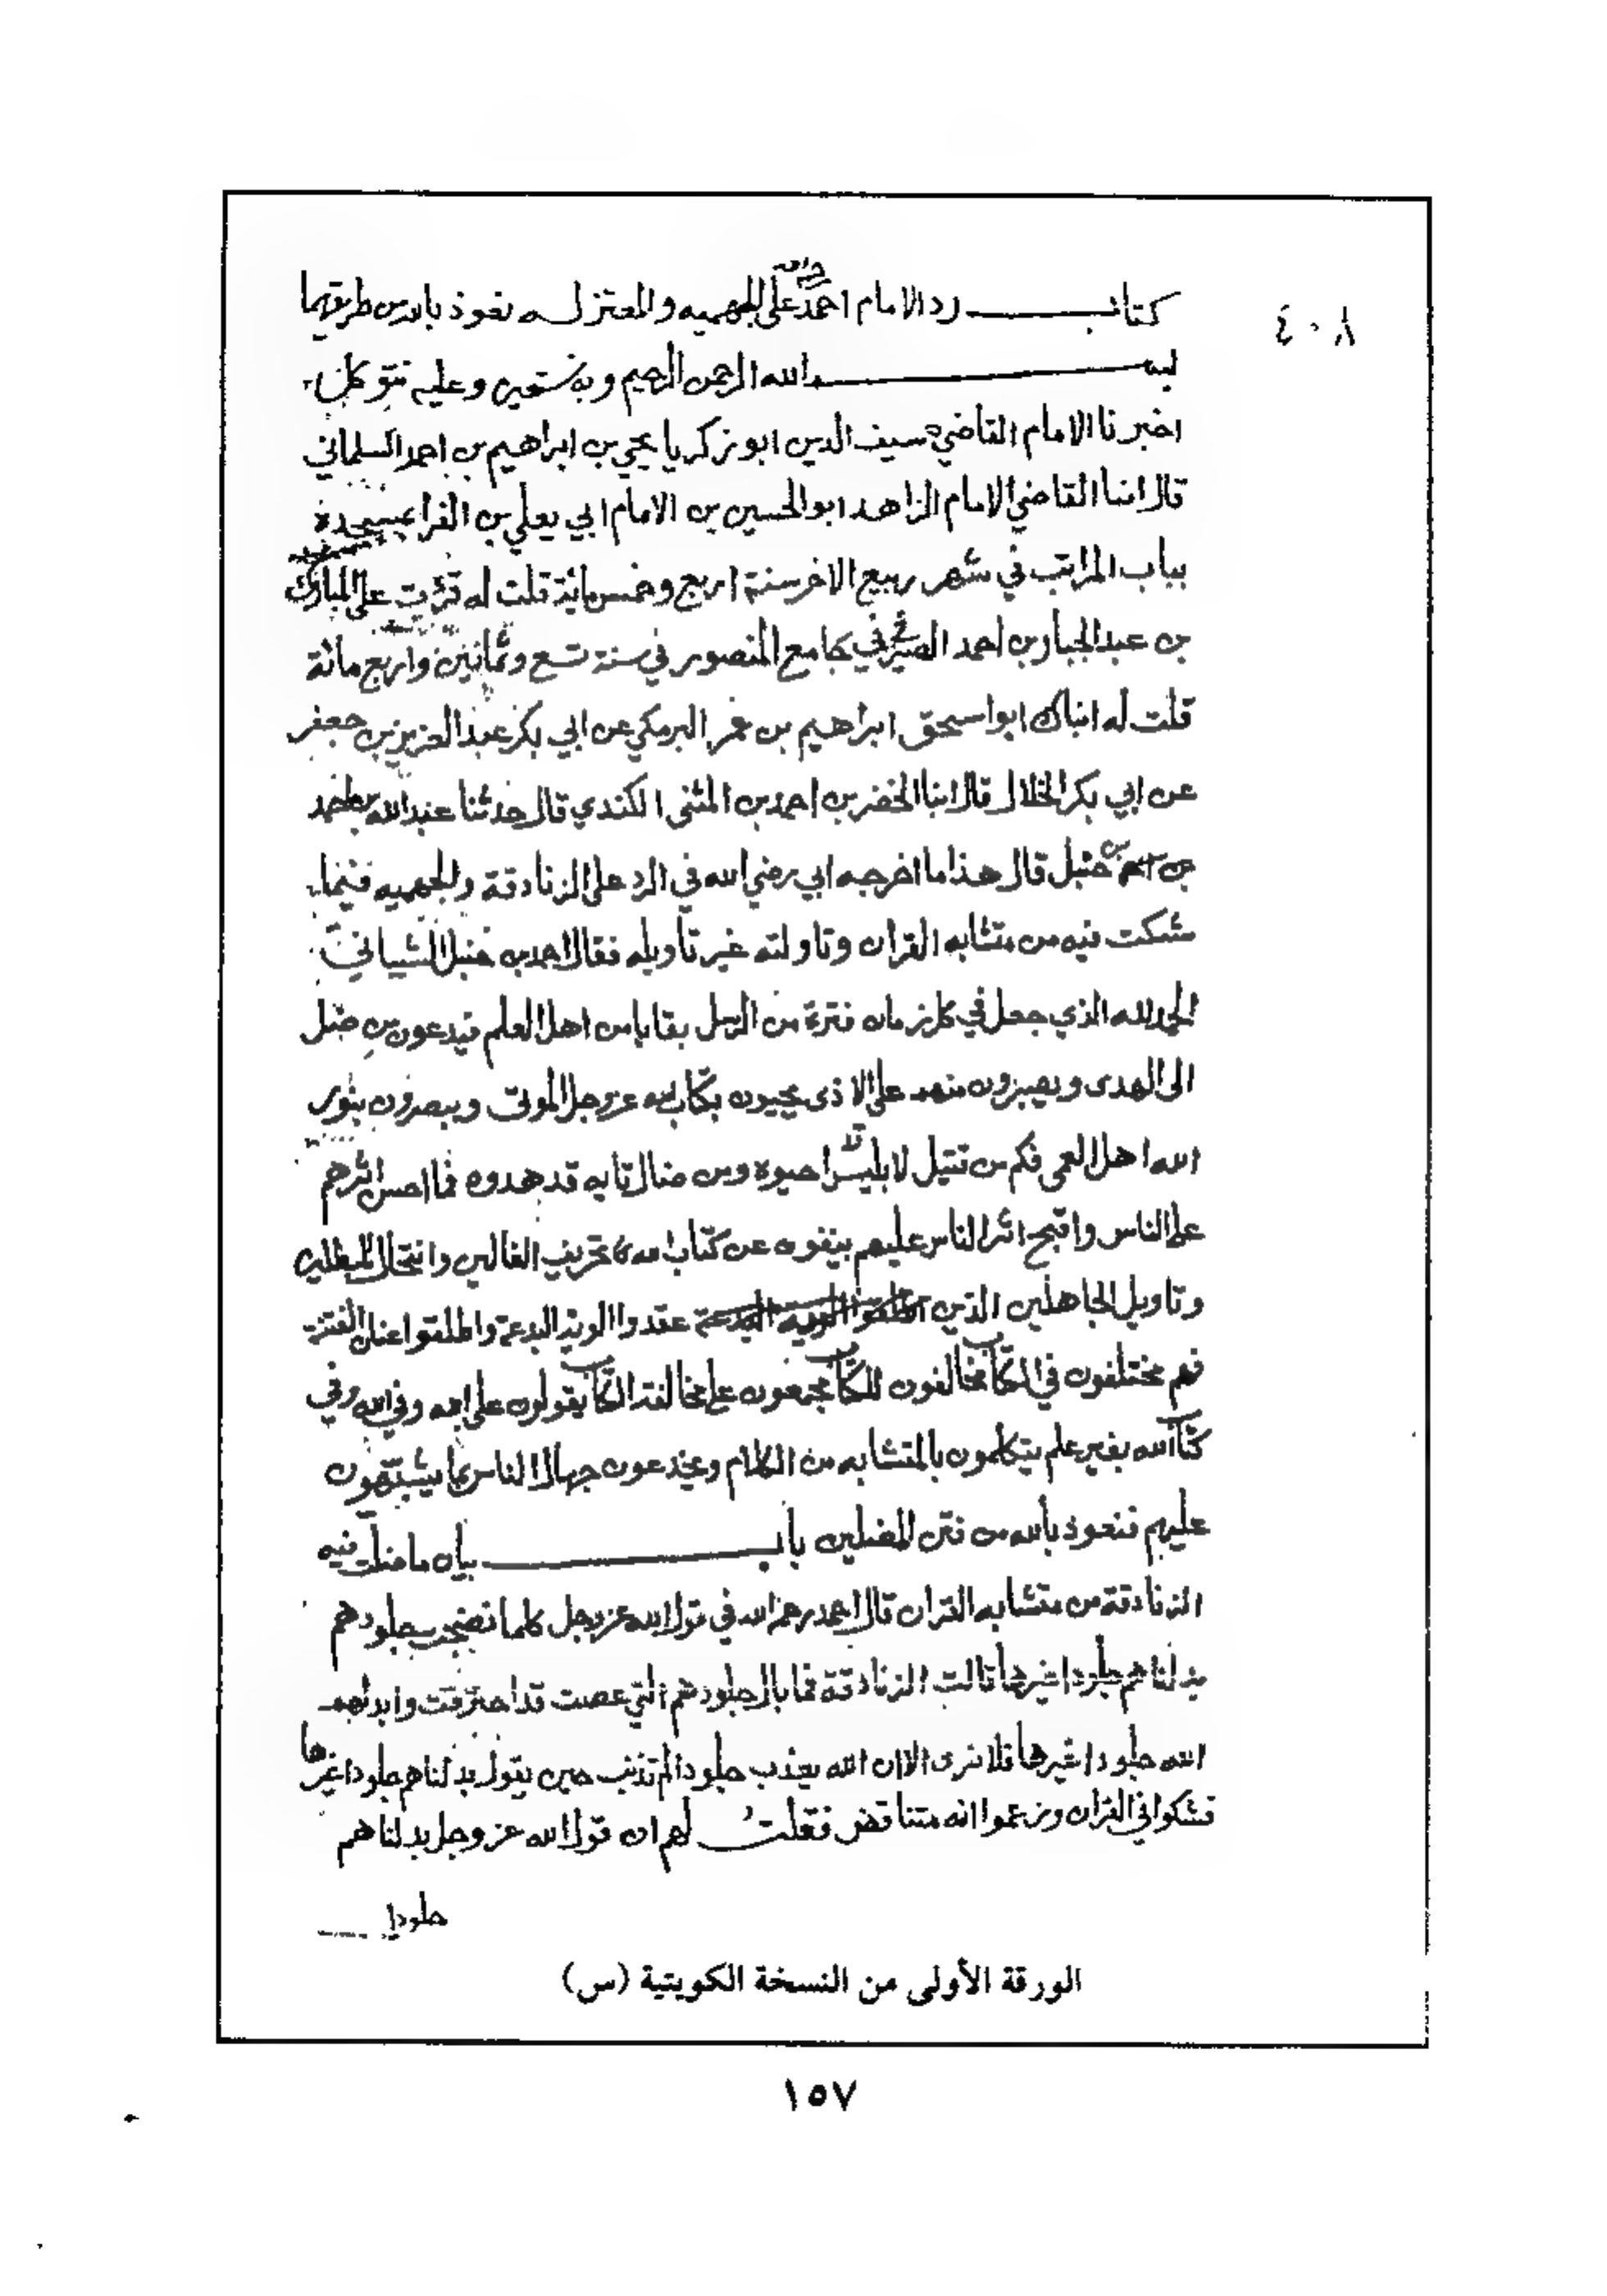 ٤٠٨
كتاب رد الامام احمد على الجهميه والمعتزله نعوذ بالله من طريقهما
بسم الله الرحمن الرحيم وبه نستعين وعليه نتوكل
اخبرنا الامام القاضي سيف الدين ابو زكريا يحيى بن ابراهيم بن احمد السلماني
قال انبا القاضي الامام الزاهد ابو الحسين بن الامام ابي يعلي بن الفرا بمسجده
بباب المراتب في شهر ربيع الاخر سنة اربع وخمس مائة قلت له قرئت على المبارك
بن عبد الجبار بن احمد الصيرفي بجامع المنصور في سنة تسع وثمانين واربع مائة
قلت له انباك ابو اسحق ابراهيم بن عمر البرمكي عن ابي بكر عبد العزيز بن جعفر
عن ابي بكر الخلال قال انبا الخضر بن احمد بن المثنى الكندي قال حدثنا عبد الله بن احمد
بن حنبل قال هذا ما اخرجه ابي رضي الله في الرد على الزنادقة والجهميه فيما
شكت فيه من متشابه القران وتاولته غير تأويله فقال احمد بن حنبل الشيباني
الحمد لله الذي جعل في كل زمان فترة من الرسل بقايا من اهل العلم يدعون من ضل
الى الهدى ويصبرون منهم على الاذى يحيون بكتاب الله عز وجل الموتى ويبصرون بنور
الله اهل العمى فكم من قتيل لابليس قد احيوه ومن ضال تايه قد هدوه فما احسن اثرهم
على الناس واقبح اثر الناس عليهم ينفون عن كتاب الله تحريف الغالين وانتحال المبطلين
وتاويل الجاهلين الذين عقدوا الوية البدعة واطلقوا عنان الفتنة
فهم مختلفون في الكتاب مخالفون للكتاب مجمعون على مخالفة الكتاب يقولون على الله وفي الله وفي
كتاب الله بغير علم يتكلمون بالمتشابه من الكلام ويخدعون جهال الناس بما يشبهون
عليهم فنعوذ بالله من فتن المضلين باب بيان ما ضلت فيه
الزنادقة من متشابه القران قال احمد رحمه الله في قول الله عز وجل كلما نضجت جلودهم
بدلناهم جلودا غيرها قالت الزنادقة فما بال جلودهم التي عصت قد احترقت وابدلهم
الله جلودا غيرها فلا نرى الا ان الله يعذب جلودا لم تذنب حين يقول بدلناهم جلودا غيرها
فشكوا في القران وزعموا انه متناقض فقلت لهم ان قول الله عز وجل بدلناهم
جلودا
الورقة الأولى من النسخة الكويتية (س)
١٥٧